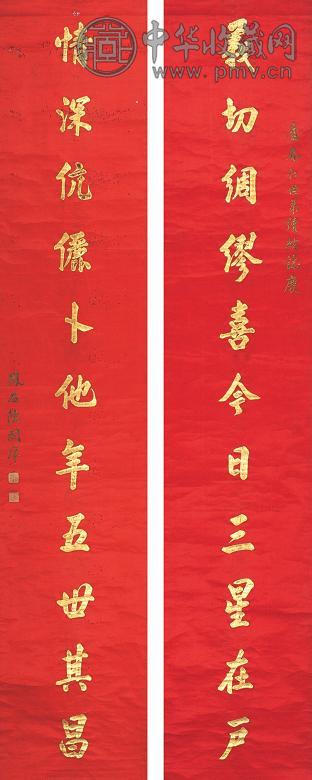 中华收藏网
www.pmv.cn
義切綢繆喜今日三星在戶
情深伉儷卜他年五世其昌